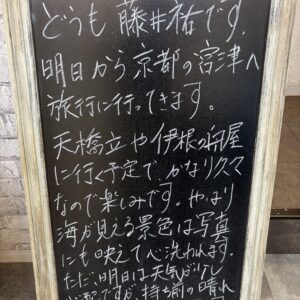 どうも藤井祐です。
明日から京都の宮津へ
旅行に行ってきます。
天橋立や伊根の舟屋
に行く予定で、かなり久々
なので楽しみです。やはり
海が見える景色は写真
にも映えて心洗われます。
ただ、明日は天気が少し
心配ですが、持ち前の晴れ